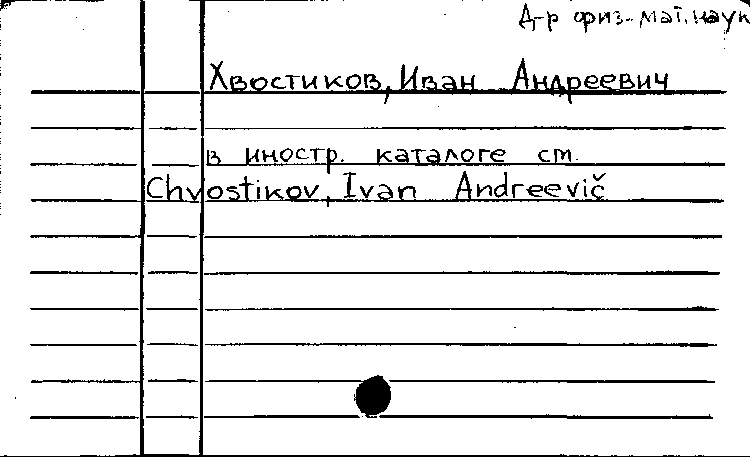 Д-р физ-мат. наук
Хвостиков, Иван Андреевич
в иностр. каталоге см.
Chvostikov, Ivan Andreevič